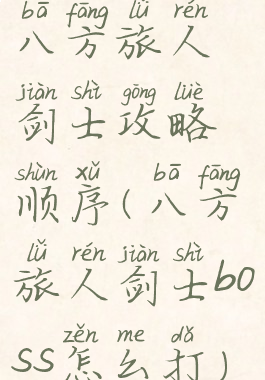 bā fāng lǚ rén
八方旅人
jiàn shì gōng lüè
剑士攻略
shùn xǔ bā fāng
顺序(八方
lǚ rén jiàn shì
旅人剑士bo
zěn me dǎ
ss怎么打)